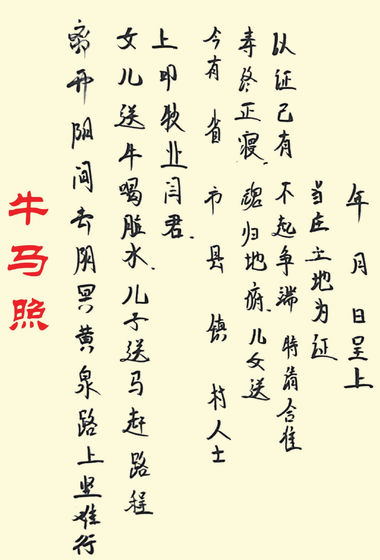 牛马照
离开阴间去阴冥黄泉路上坚难行
女儿送牛喝脏水、儿子送马赶路程
上叩牧业闫君、
今有 省 市 县 镇 村人士
寿终正寝、魂归地府、儿女送
以证己有 不起争端 特 合准
当庄土地为证
年 月 日呈上